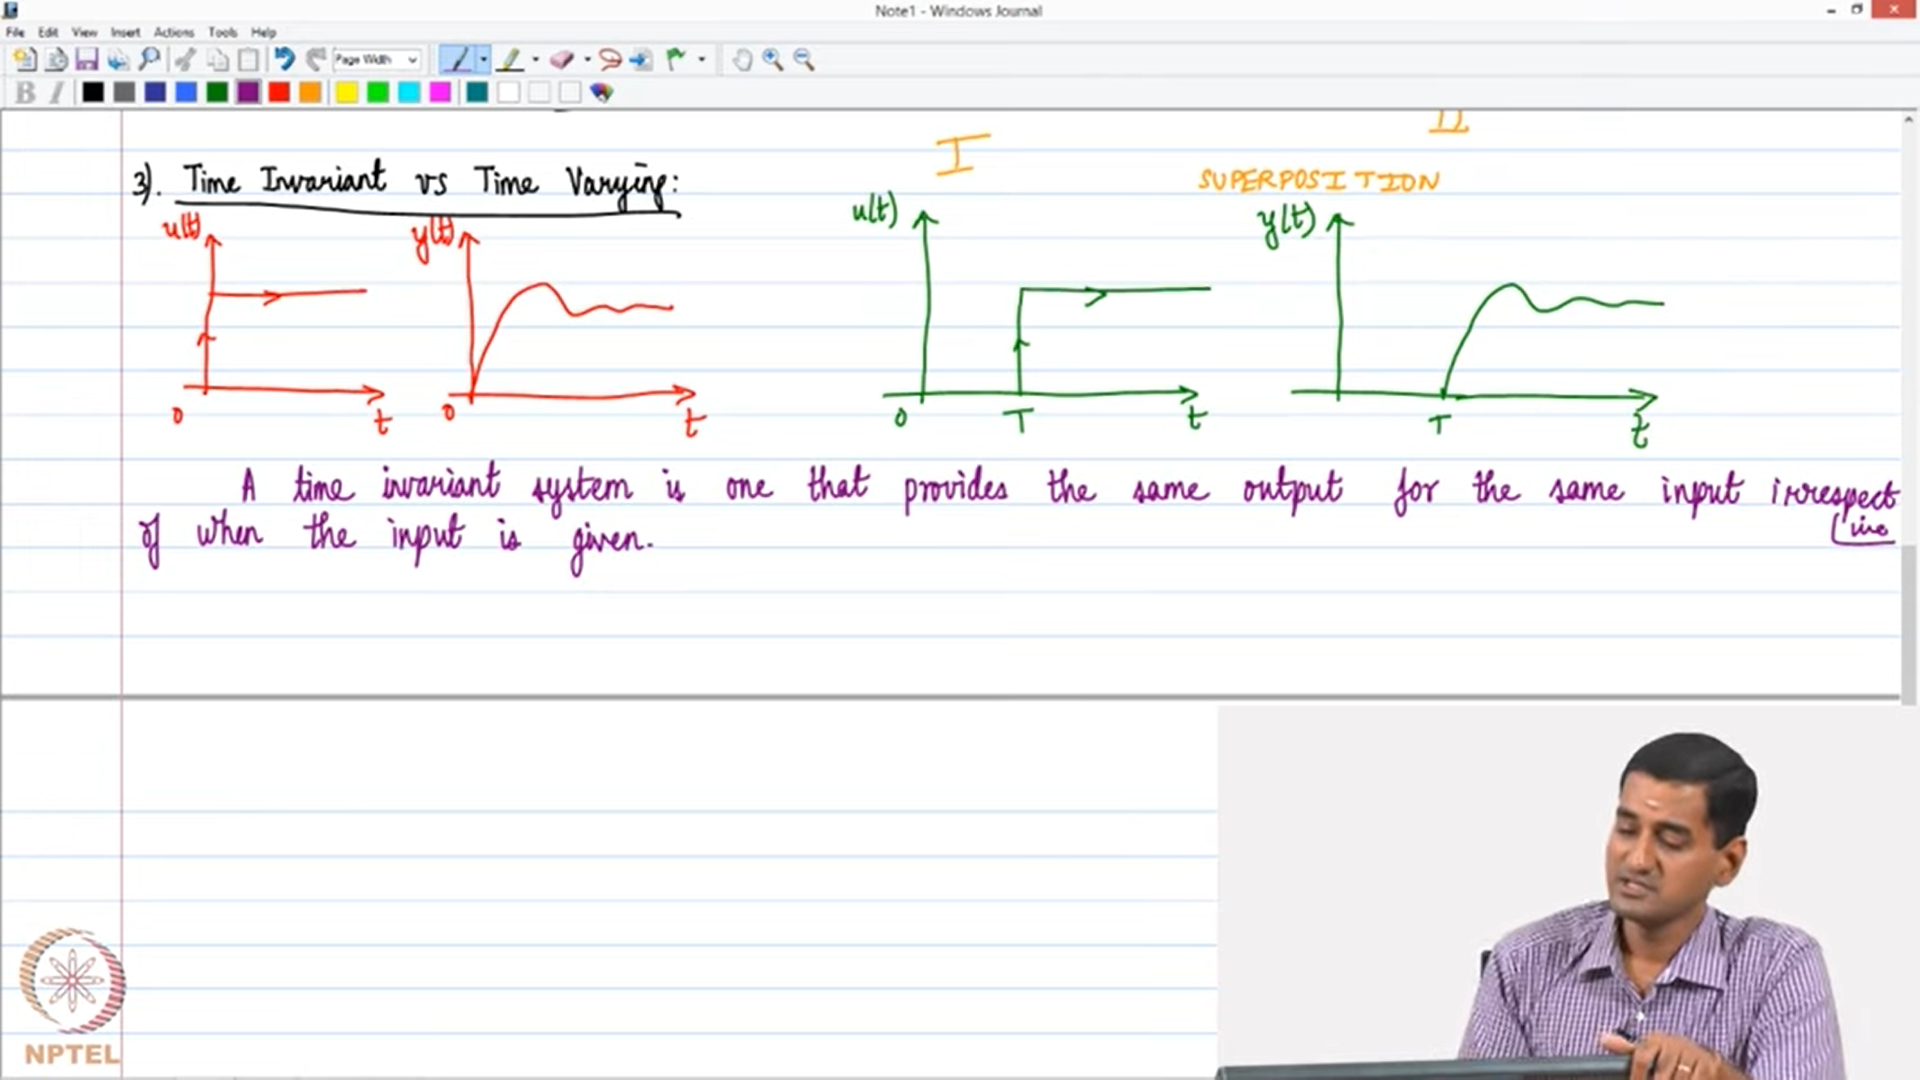 Note1 - Windows Journal
File Edit View Insert Actions Tools Help
Page Width
B I
I II
3). Time Invariant vs Time Varying:
SUPERPOSITION
u(t) y(t) u(t) y(t)
0 t 0 t 0 T t T t
A time invariant system is one that provides the same output for the same input irrespect
ive
of when the input is given.
NPTEL